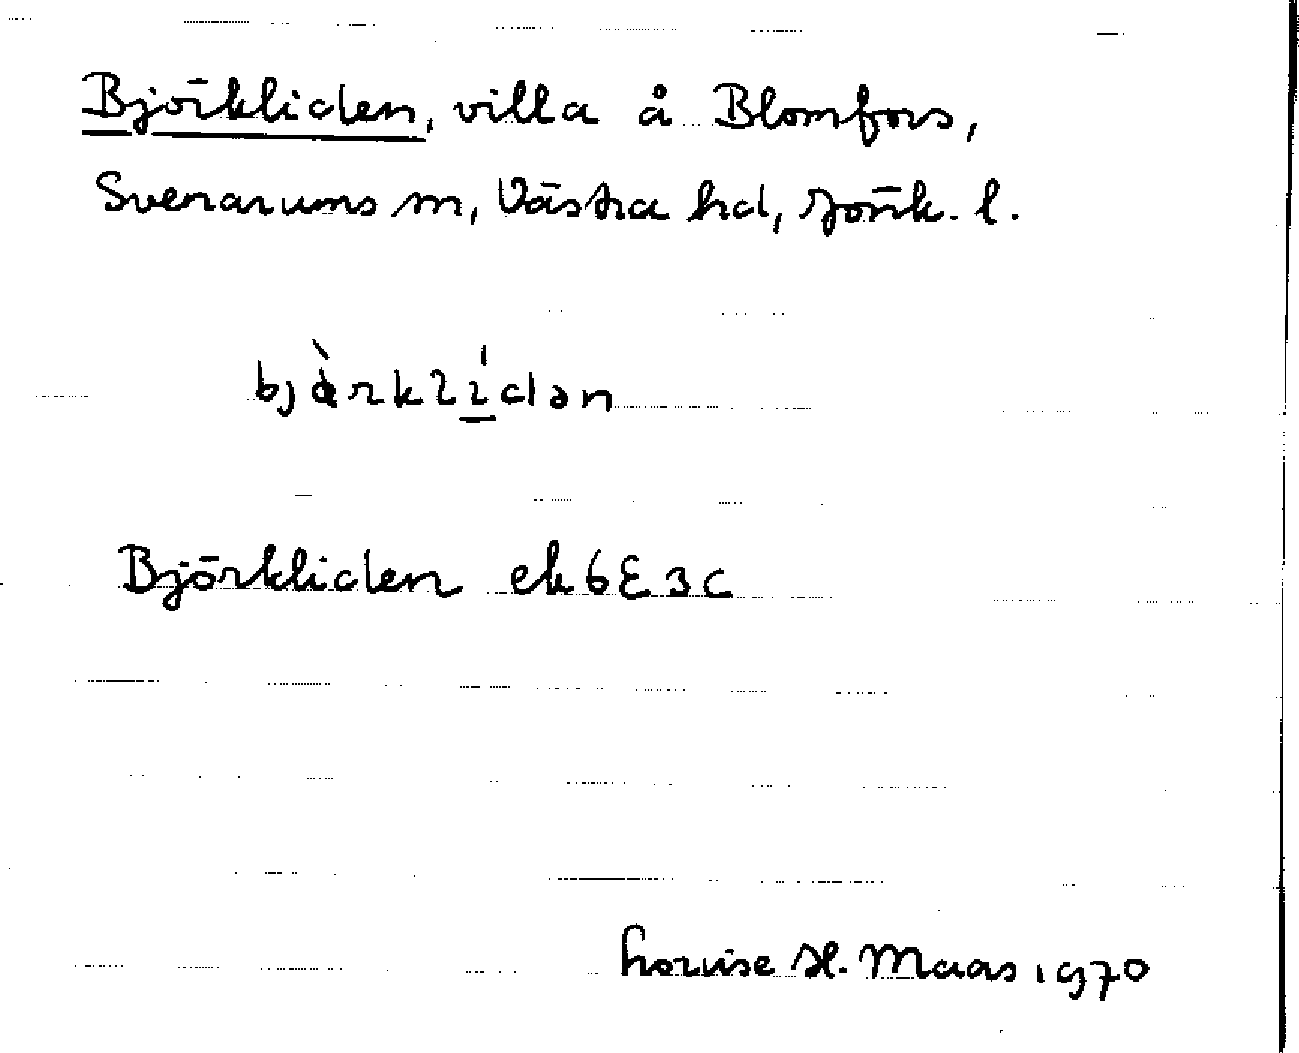 Björkliden, villa å Blomfors,
Svenarums sn, Västra hd, Jönk. l.
bjàrklídən
Björkliden ek 6E3c
Louise H. Maas 1970